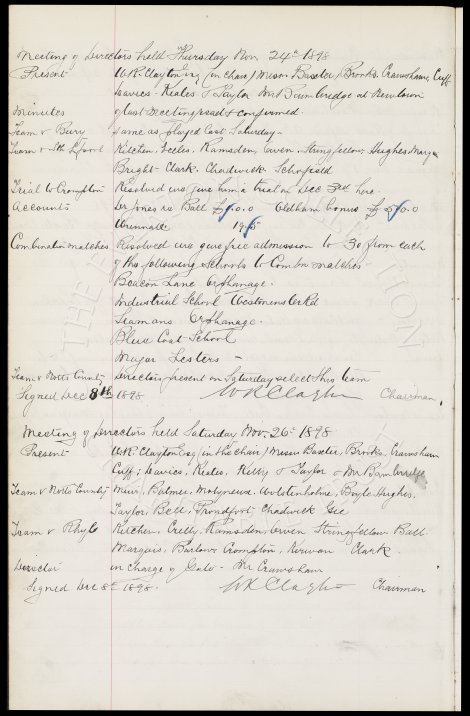 Meeting of Directors held Thursday Nov 24th 1898
Present W.R. Clayton Esq (in chair) Messrs Baxter, Brooks, Crawshaw, Cuff
Leavies - Keates & Taylor Mr Bainbridge at Newtown
Minutes of last Meeting read & confirmed.
Team v Bury Same as played last Saturday -
Team v Sth L'pool Kitchen, Eccles, Ramsden, Owen, Stringfellow, Hughes,
Bright - Clark. Chadwick. Schofield
Trial to Crompton Resolved we give him a trial on Dec 3rd here.
Accounts Dr Jones re Ball Oldham bonus
19.5
Combination matches Resolved we give free admission to 30 from each
of the following schools to Combn matches -
Beacon Lane Orphanage.
Industrial School Westminster Rd
Seamans Orphanage.
Blue Coat School
Major Lesters -
Team v Notts County Directors present on Saturday select this team
Signed Dec 8th 1898 W R Clayton Chairman
Meeting of Directors held Saturday Nov. 26th 1898
Present W.R. Clayton Esq (in the chair) Messrs Baxter, Brooks, Crawshaw
Cuff, Leavies, Keates, Kelly & Taylor & Mr Bainbridge
Team v Notts County Muir, Balmer, Molyneux, Wolstenholme, Boyle Hughes,
Taylor, Bell, Proudfoot, Chadwick Gee
Team v Rhyl Kitchen, Crelly, Ramsden, Owen Stringfellow Ball
Marquis, Barlow Crompton, Kirwan Clark.
Director in charge of Gate - Mr Crawshaw
Signed Dec 8th 1898. W R Clayton Chairman